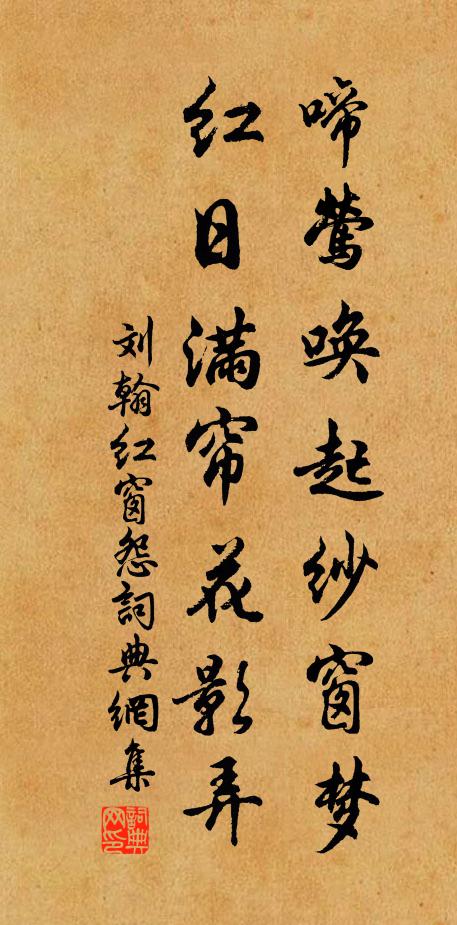 啼莺唤起纱窗梦
红日满帘花影弄
刘翰红窗怨詞典網集
詞典网印